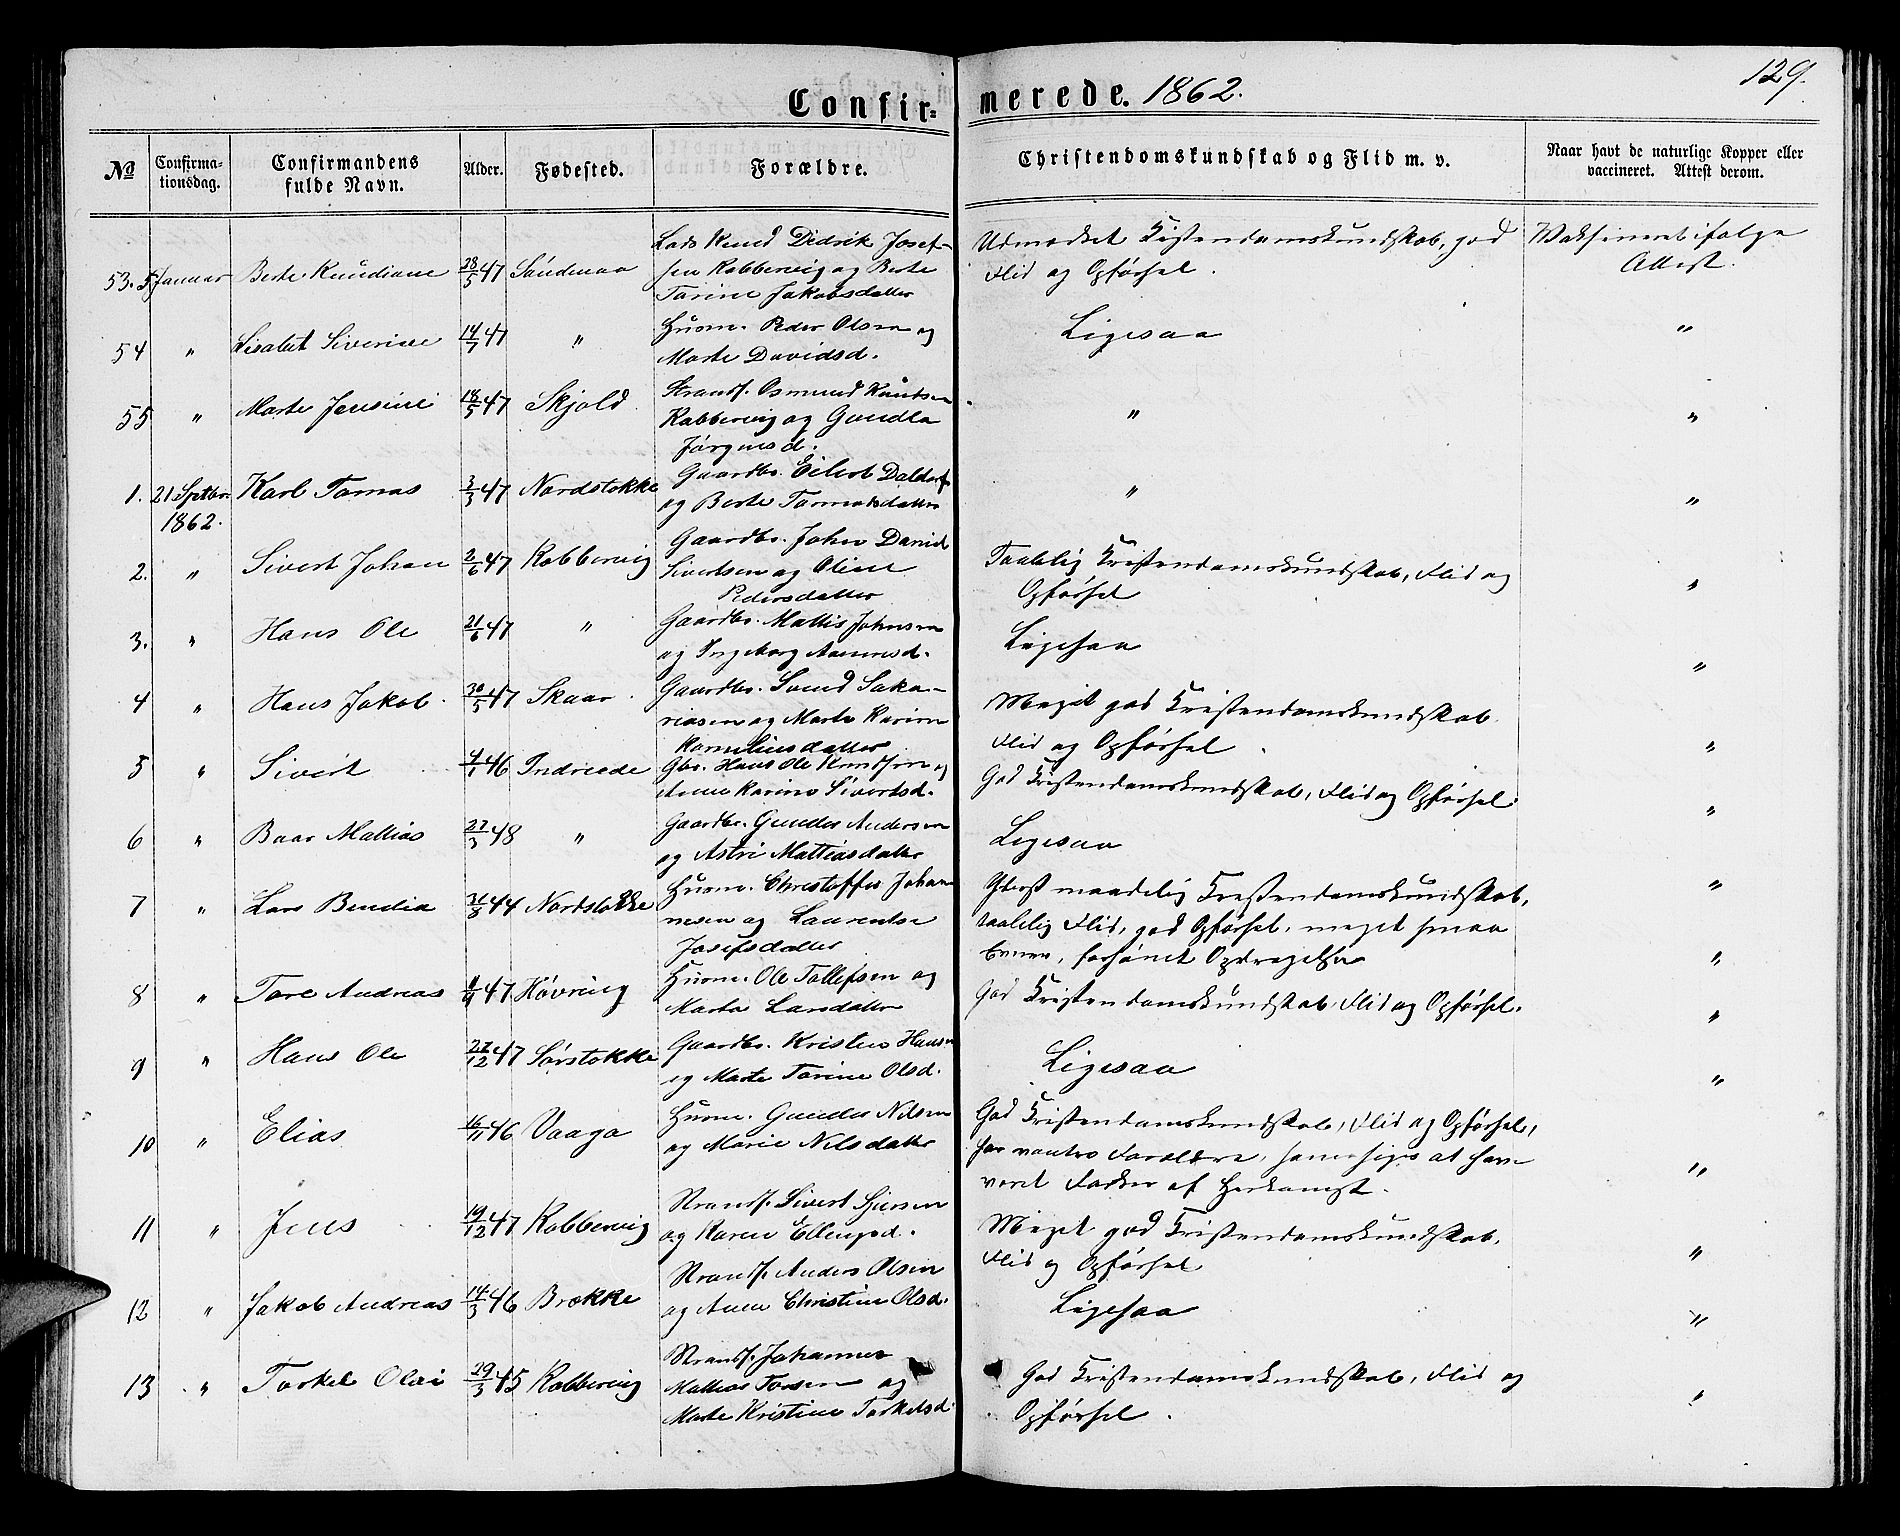 129.
Confirmerede. 1862.
No Confirmationsdag. Confirmandens fulde Navn. Alder. Fødested. Forældre. Christendomskundskab og Flid m. v. Naar havt de naturlige Kopper eller vaccineret. Attest derom.
53. 5 Januar Berte Knudiane 28/5 47 Søndenaa Lods Knud Didrik Josef- Udmærket Kristendomskundskab, god Vaksineret ifølge
sen Kobbervig og Berte Flid og Opførsel. Attest.
Torine Jakobsdatter
54 " Lisabet Siverine 14/7 47 " Husm. Peder Olsen og Ligesaa "
Marte Davidsd.
55 " Marte Jensine 18/5 47 Skjold Strands. Osmund Knutsen " "
Kobbervig og Gundla
Jørgensd.
1. 21 Septbr. Karl Tomas 3/3 47 Nordstokke Gaardbr. Eilert " "
1862. og Berte
2. " Sivert Johan 2/6 47 Kobbervig Gaardbr. John Daniel Taalelig Kristendomskundskab, Flid og "
Sivertsen og Oline Opførsel
Pedersdatter
3. " Hans Ole 21/6 47 " Gaardbr. Mattis Johnsen Ligesaa "
og Ingeborg
4 " Hans Jakob. 30/5 47 Skaar Gaardbr. Svend Saka- Meget god Kristendomskundskab "
riasen og Marte Karine Flid og Opførsel.
Korneliusdatter
5 " Sivert 4/1 46 Indreede Gbr. Hans Ole Knudsen og God Kristendomskundskab, Flid og Opførsel "
Anne Karine Sivertsd.
6 " Baar Mattias 27/3 48 " Gaardbr. Gunder Andersen Ligesaa "
og Astri Mattiasdatter
7 " Lars Bendix 21/8 44 Nordstokke Husm. Christoffer Johan- Yderst maadelig Kristendomskundskab, "
nesen og Laurentse taalelig Flid, god Opførsel, meget smaa
Josefsdatter Evner, forsømt Opdragelse
8 " Tore Andreas 47 Høvring Husm. Ole Tollefsen og God Kristendomskundskab Flid og Opførsel. "
Marte Larsdatter
9 " Hans Ole 27/12 47 Sørstokke Gaardbr. Kristen Hansen Ligesaa "
og Marte Torine Olsd.
10 " Elias 16/11 46 Vaaga Husm. Gunder Nilsen God Kristendomskundskab, Flid og Opførsel, "
og Marie Nilsdatter har vantro Forældre, som siges at have
været Fanter af Herkomst.
11 " Jens 19/12 47 Kobbervig Strands. Sivert Gjersen Meget god Kristendomskundskab, "
og Karen Ellingsd. Flid og Opførsel
12 " Jakob Andreas 14/3 46 Brekke Strands. Anders Olsen Ligesaa "
og Anne Christine Olsd.
13 " Torkel Olai 29/3 45 Kobbervig Strands. Johannes God Kristendomskundskab, Flid og "
Mattias Torsen og Opførsel.
Marte Kristine Torkelsd.